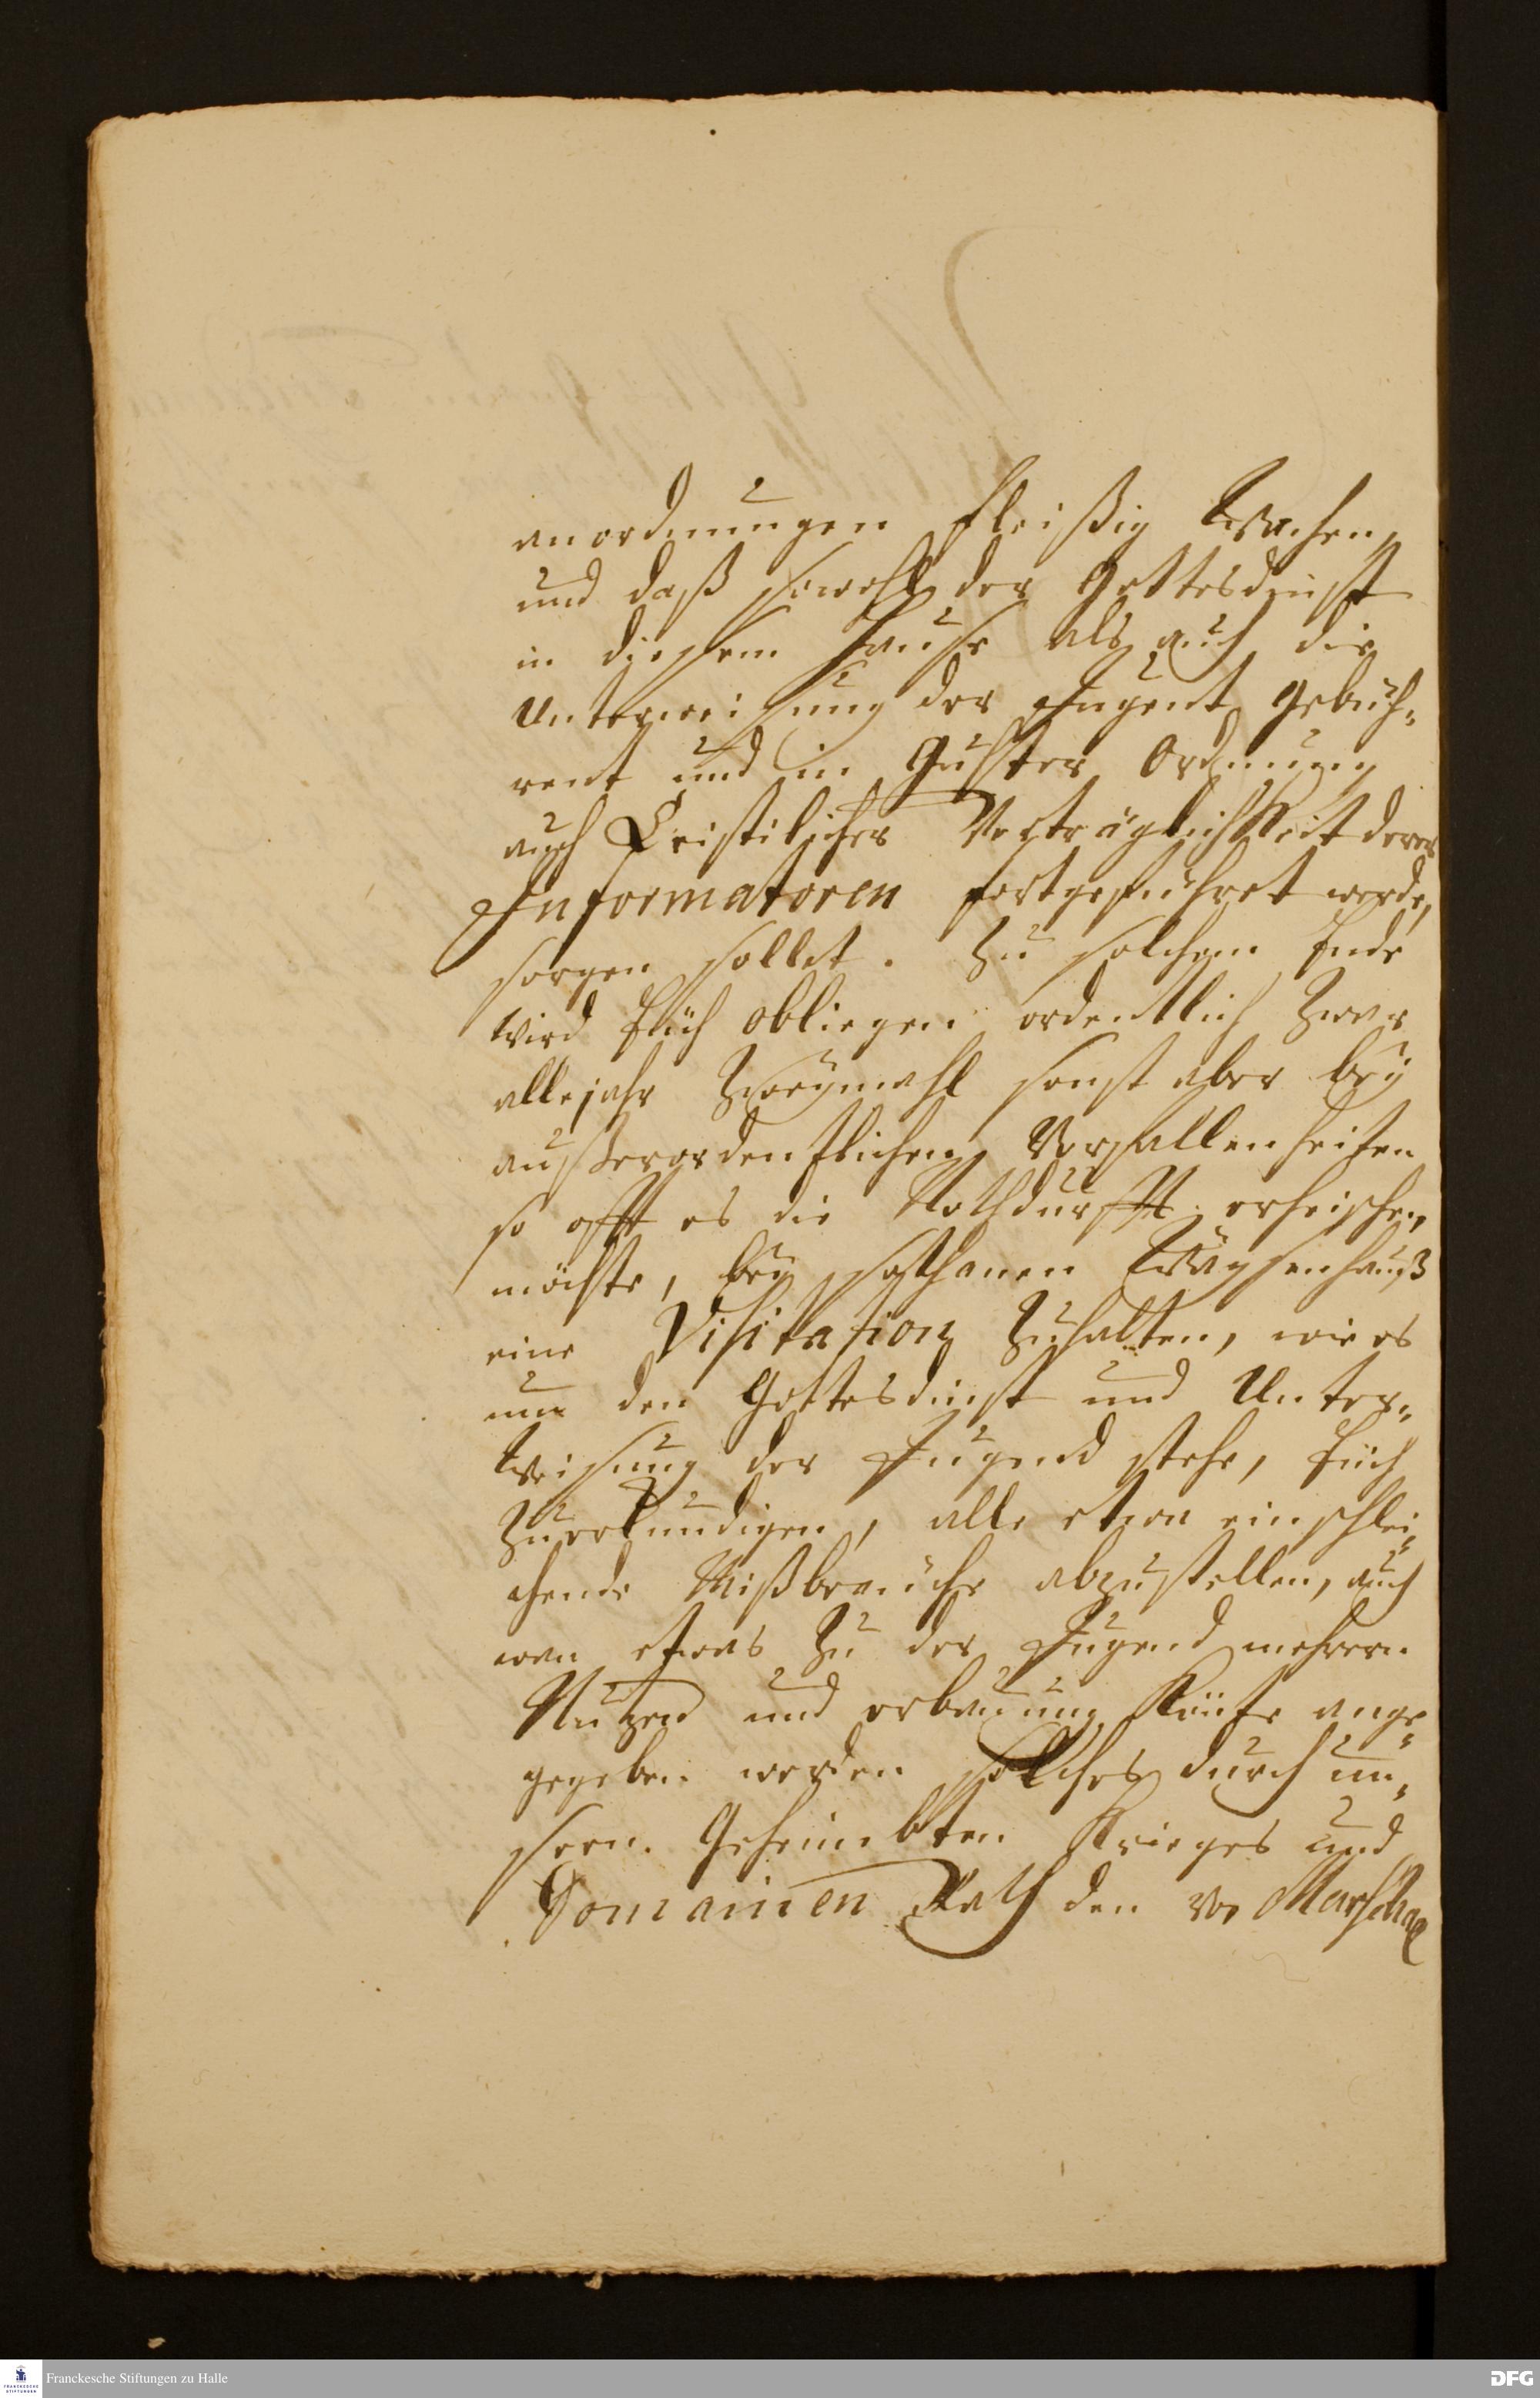 anordnungen fleißig Wachen,
und daß sowohl der Gottesdinst
in diesem Hause als auch die
Unterweisung der Jugent gebüh-
rent und in Guhter Ordnung
auch Cristilicher Verträglichkeit derer
Informatoren fortgeführet werde,
sorgen sollet. Zu solchem Ende
wird Euch obliegen ordentlich Zwar
alle jahr Zweymahl sonst aber bey
außerordentlichen Vorfallenheiten
so offt es die Nothdurfft erheischen
möchte, bey sothanen Wäysenhauß
eine Visitation Zuhalten, wie es
um den Gottesdinst und Unter-
weisung der Jugend stehe, Euch
Zuerkundigen, alle etwa einschlei-
chende Mißbräuche abzustellen, auch
wan etwas Zu der Jugend mehrern
Nutzen und erbauung Könte ange-
gegeben werden solches durch un-
sern Geheimbten Krieges und
Domainen Rath den von Marschal
Franckesche Stiftungen zu Halle
FRANCKESCHE STIFTUNGEN
DFG